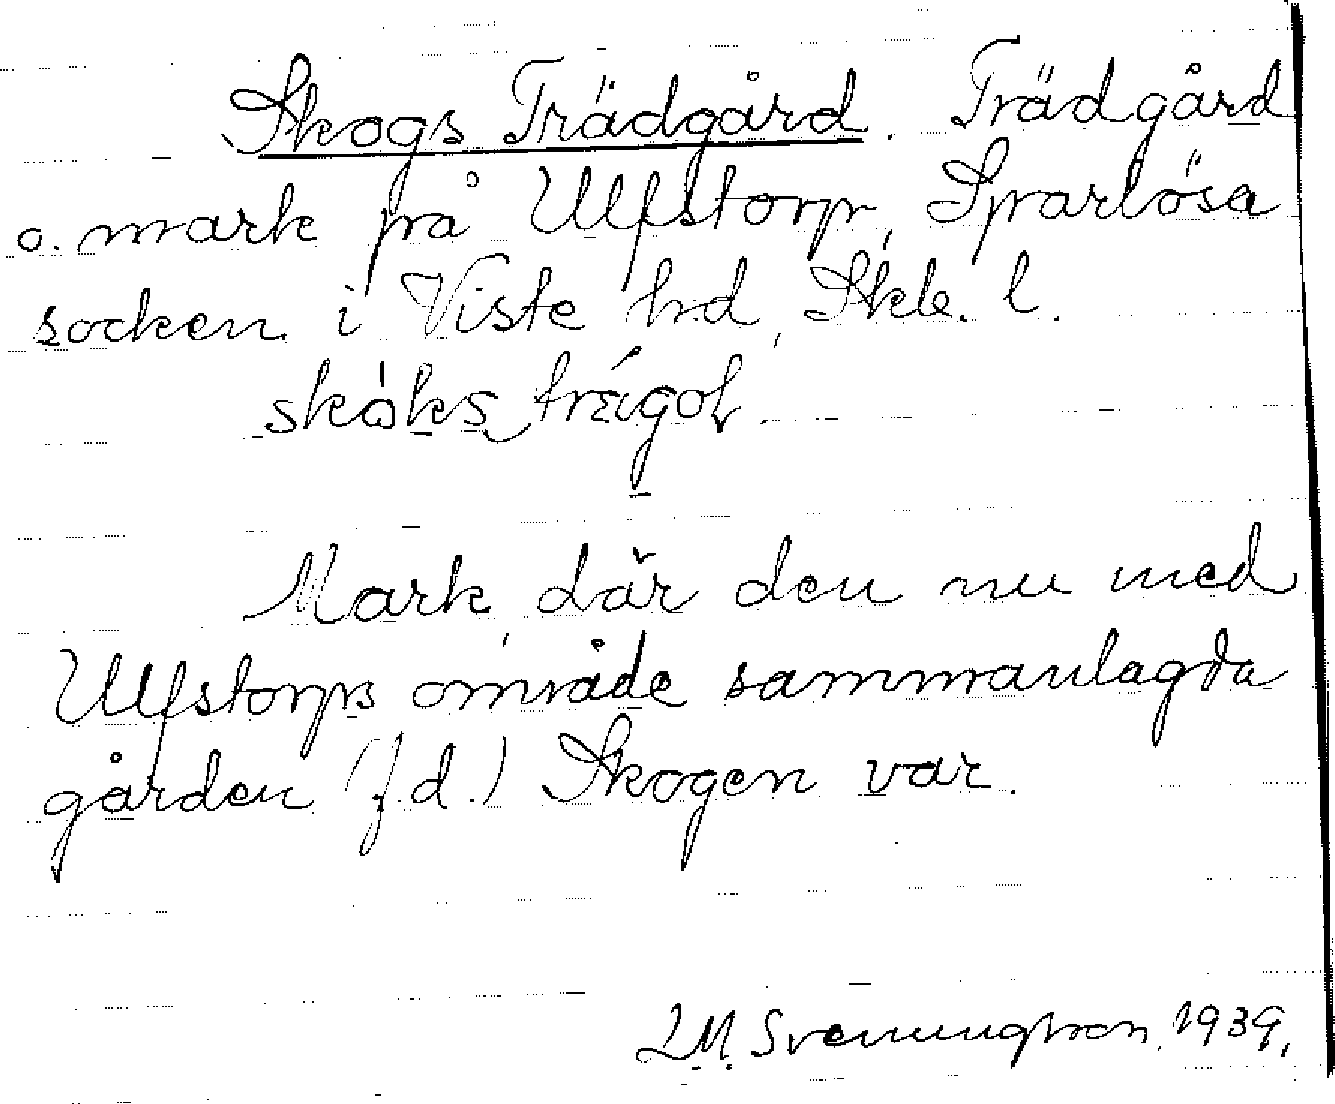 Skogs Trädgård. Trädgård
o. mark på Ulfstorp, Sparlösa
socken i Viste hd, Skb. l.
Mark, där den nu med
Ulfstorps område sammanlagda
gården (f.d.) Skogen var.
L.M. Svenungsson. 1939.